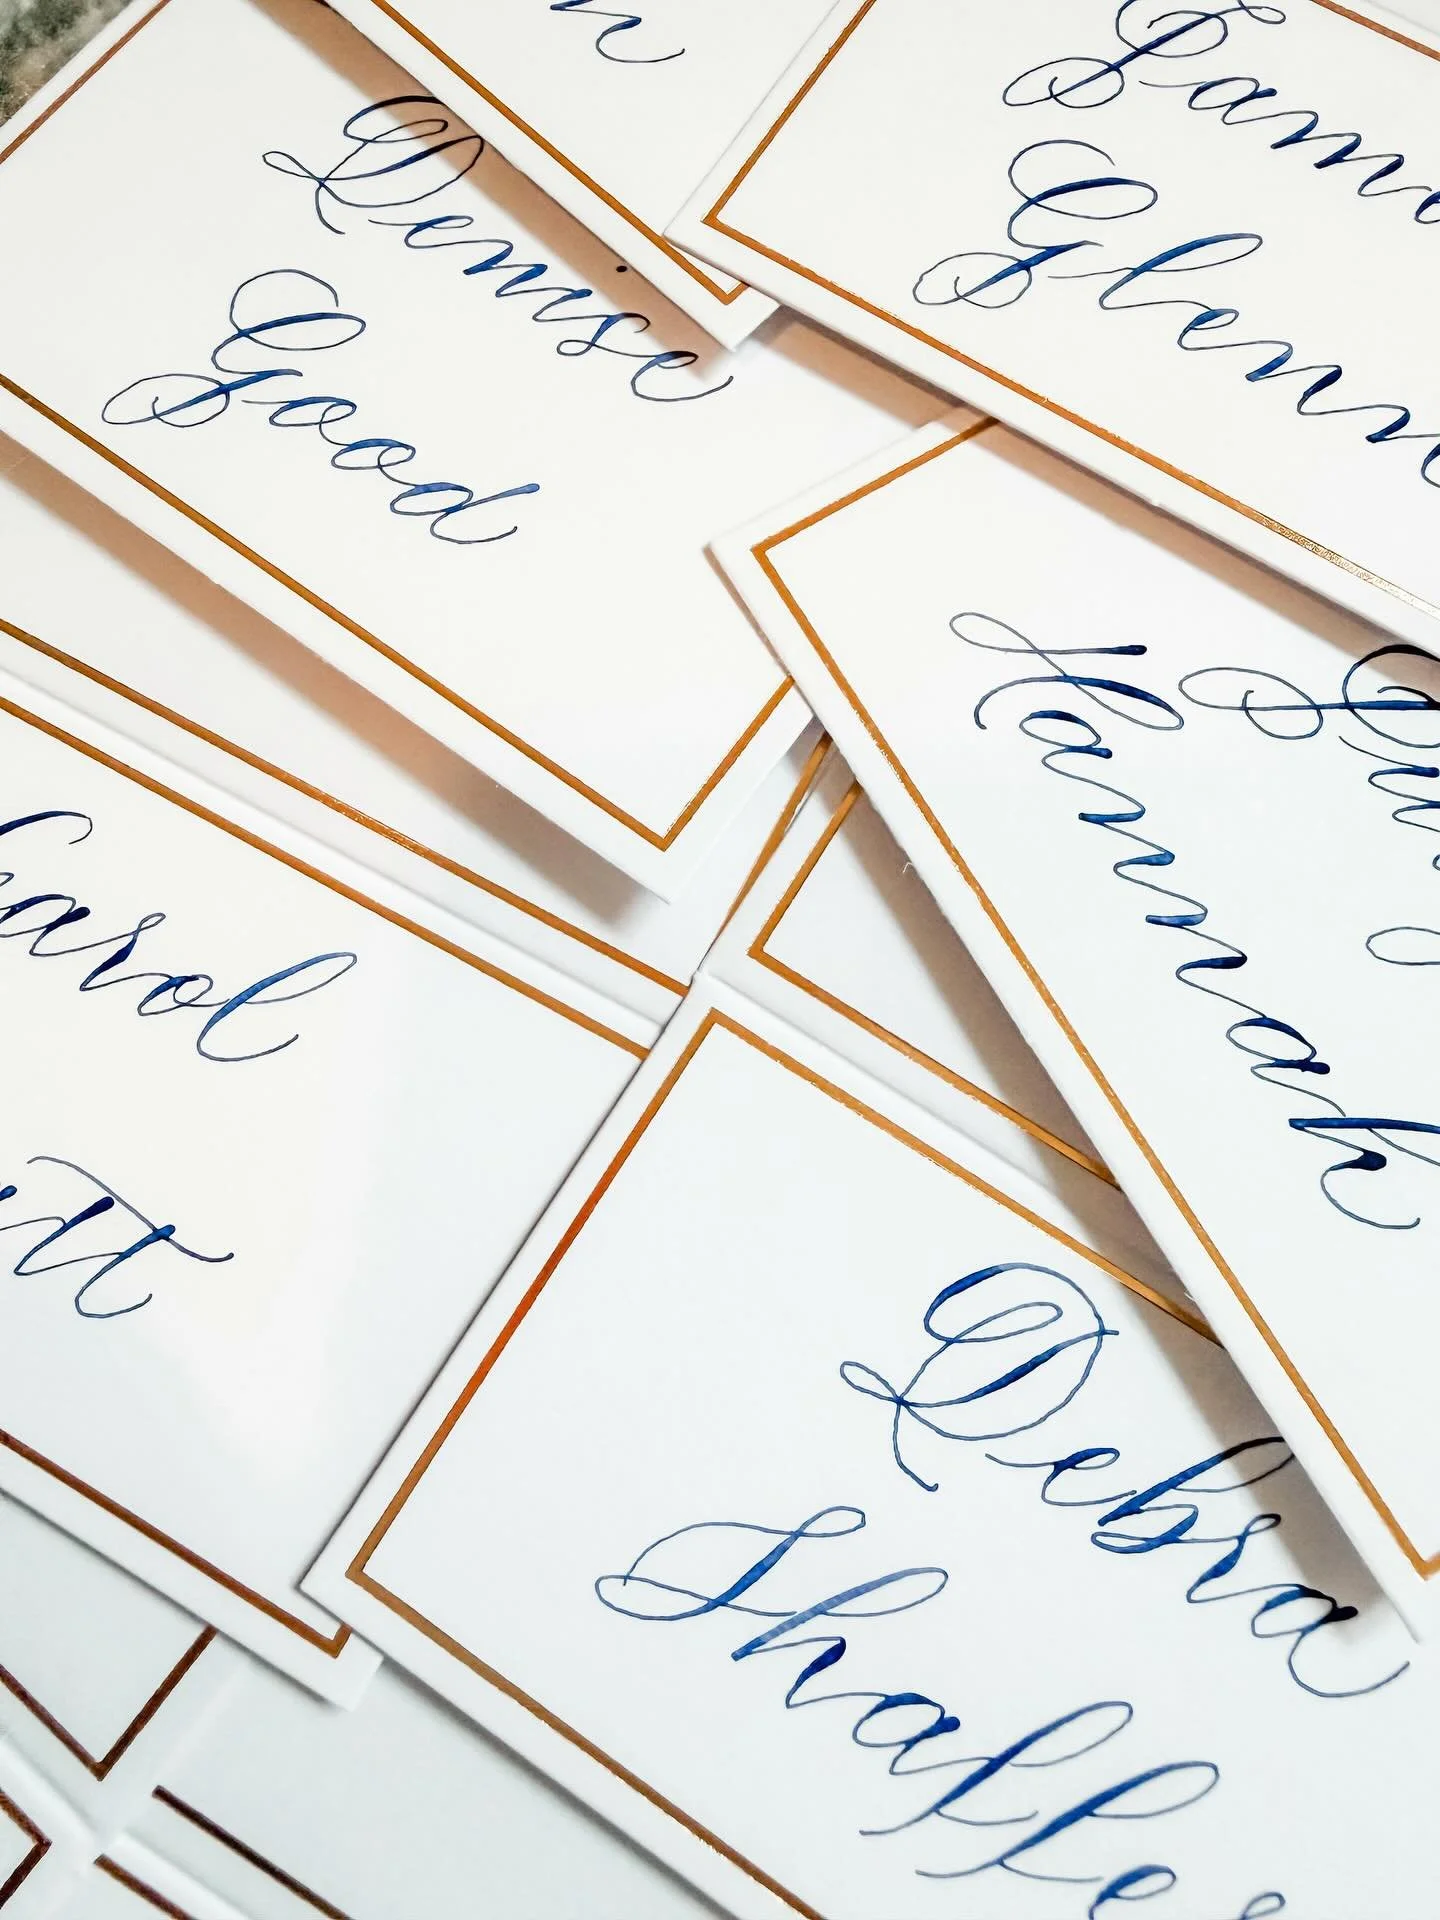 Denise
Good
Glenn
Hannah
Carol
Debra
Shaffe